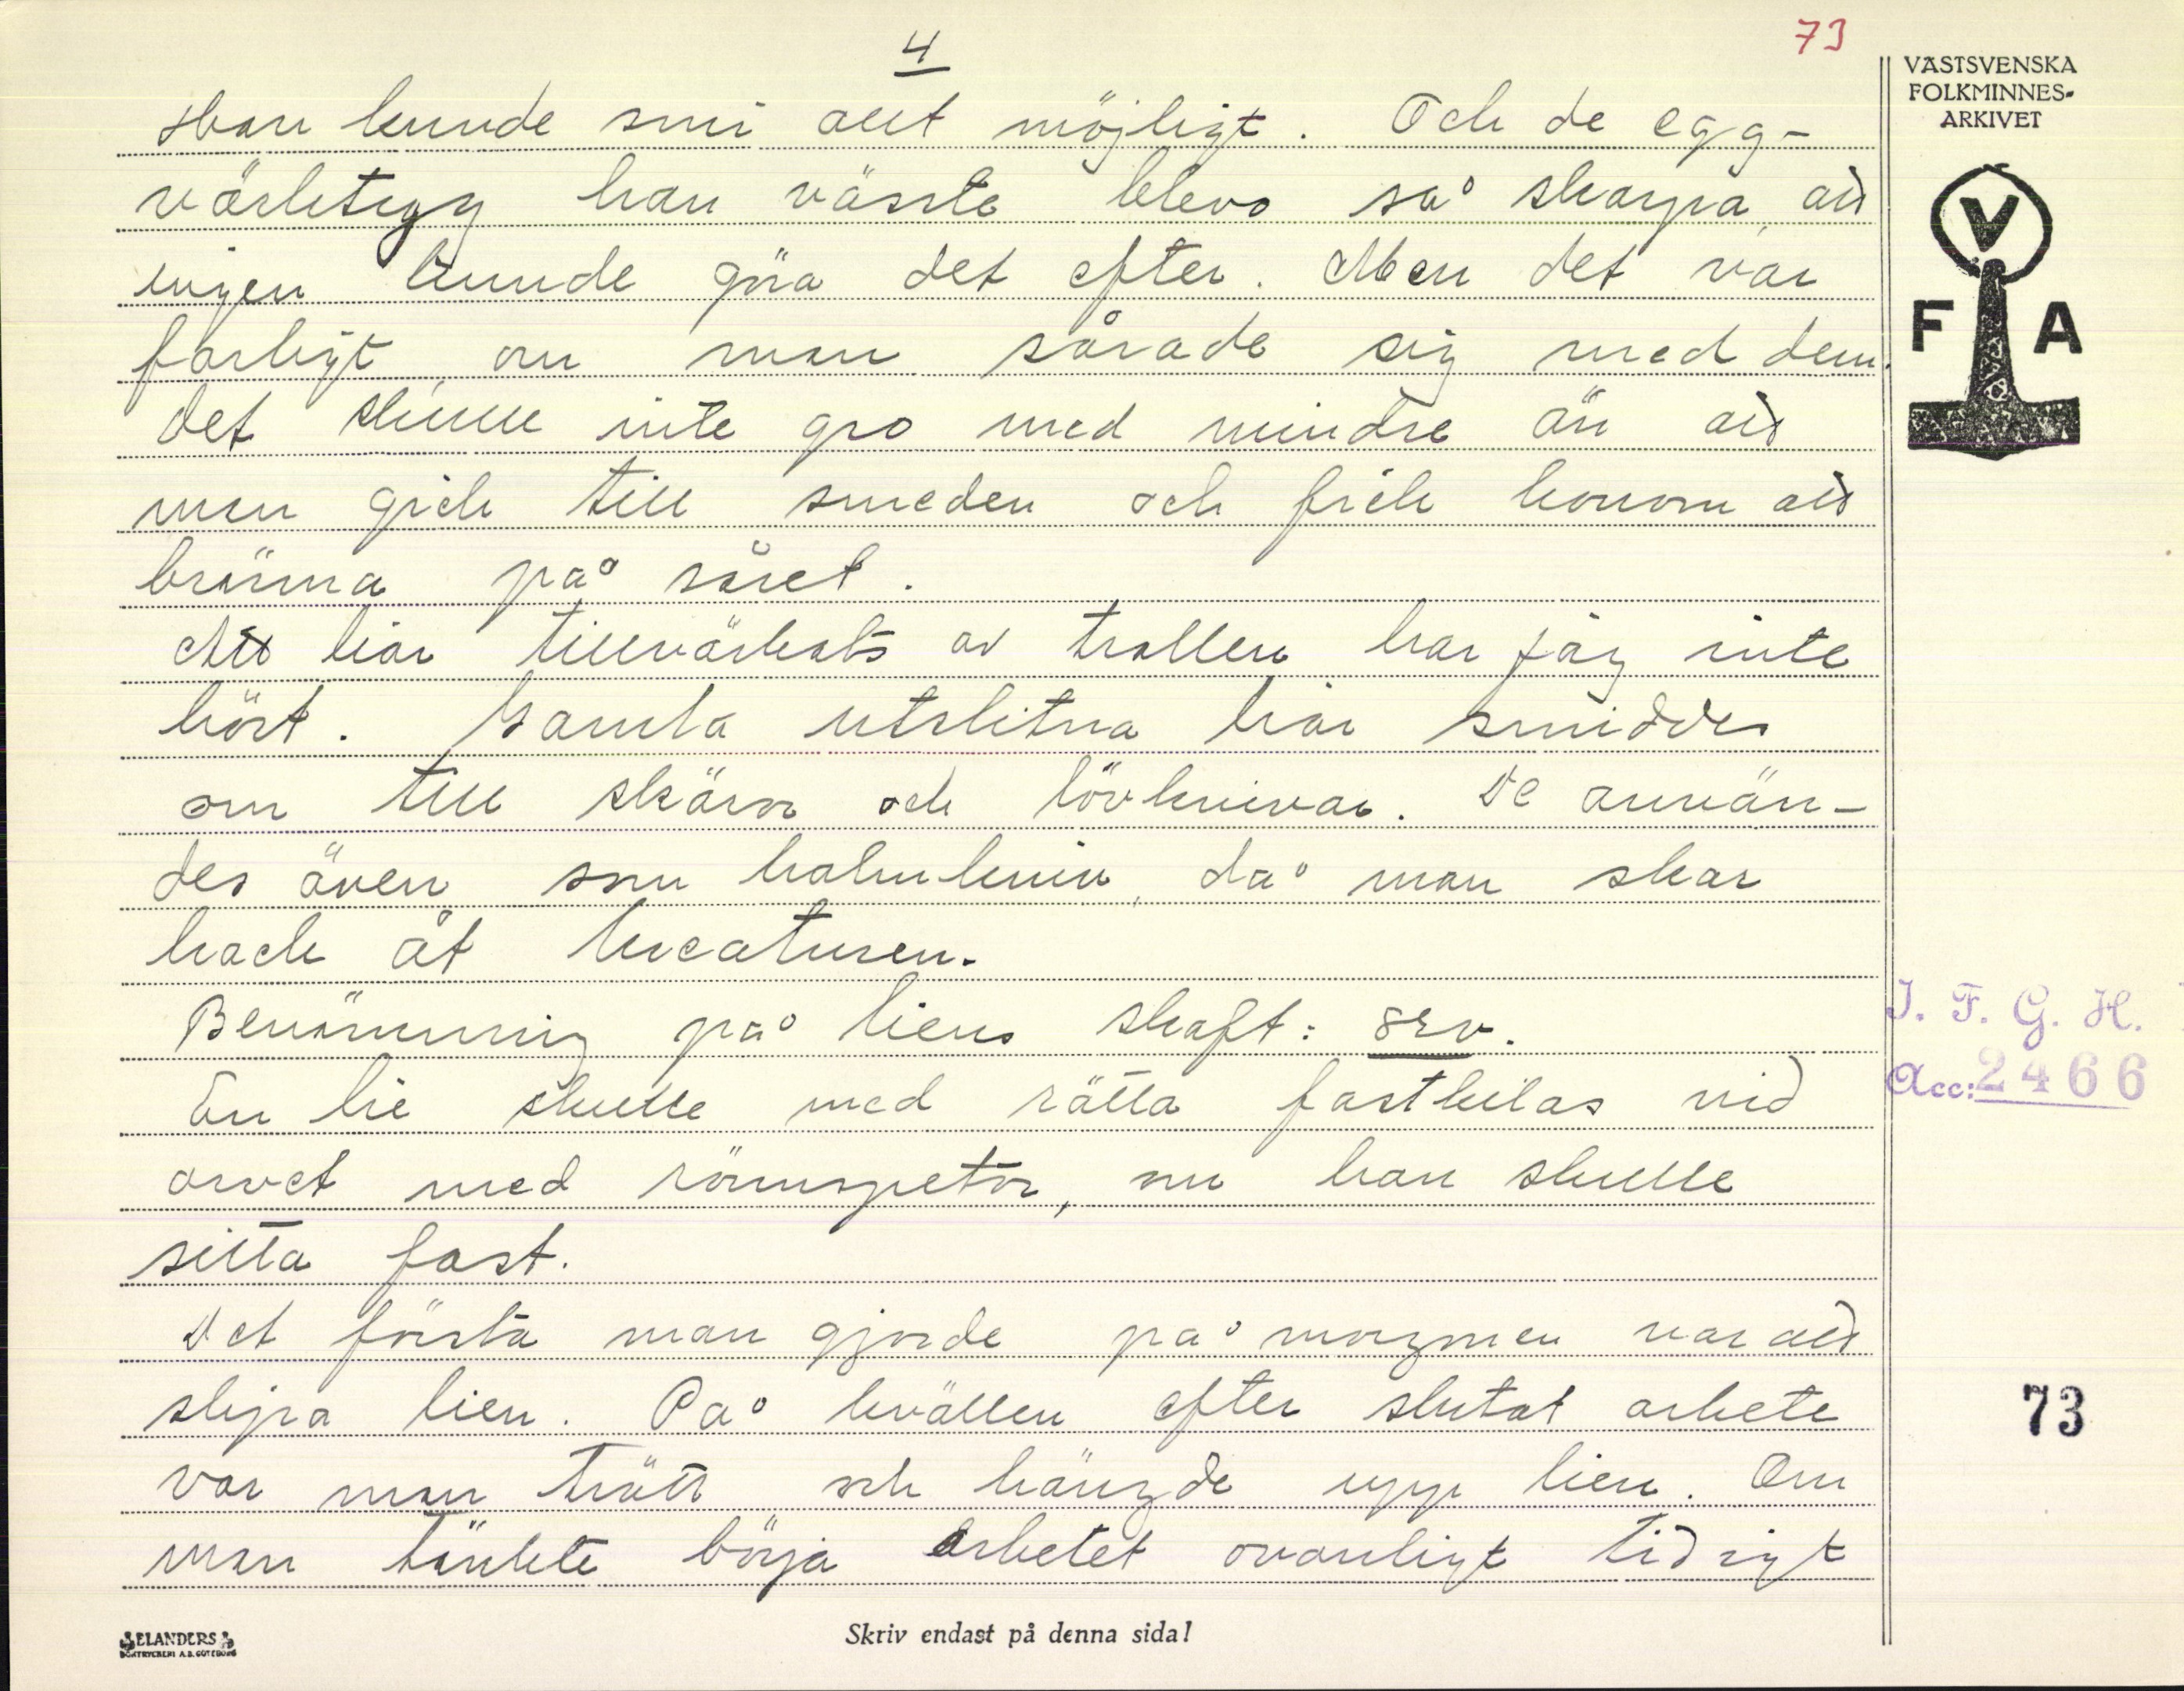 4
73
VÄSTSVENSKA
FOLKMINNES-
ARKIVET
V
F A
Han kunde smi allt möjligt. Och de egg-
värktyg han vässte blevo så skarpa, att
ingen kunde göra det efter. Men det var
farligt, om man sårade sig med dem.
Det skulle inte gro med mindre än att
man gick till smeden och fick honom att
bränna på såret.
Att liar tillvärkats av trollen har jag inte
hört. Gamla utslitna liar smiddes
om till skäror och lövknivar. De använ-
des även som halmkniv, då man skar
hack åt kreaturen.
Benämning på liens skaft: orv.
En lie skulle med rätta fastkilas vid
orvet med rönnspetor, om han skulle
sitta fast.
Det första man gjorde på morgonen var att
slipa lien. På kvällen efter slutat arbete
var man trött och hängde upp lien. Om
man tänkte börja arbetet ovanligt tidigt
I. F. G. H.
Acc: 2466
73
ELANDERS
BOKTRYCKERI A.B. GÖTEBORG
Skriv endast på denna sida!